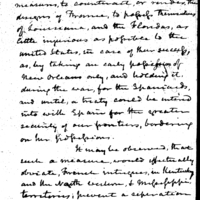 measures, to counteract, or render, the
designs of France, to possess themselves
of Louisiana, and the Floridas, as
little injurious as possible to the
United States, in case of their success,
as, by taking an early possession of
New Orleans only, and holding it,
during the war, for the Spaniards,
and until, a treaty could be entered
into with Spain for the greater
security of our frontiers, bordering
on her possessions.
It may be observed, that
such a measure, would effectually
obviate, French intrigues, in Kentucky
and the North Western, & Mississippi
territories; prevent a seperation